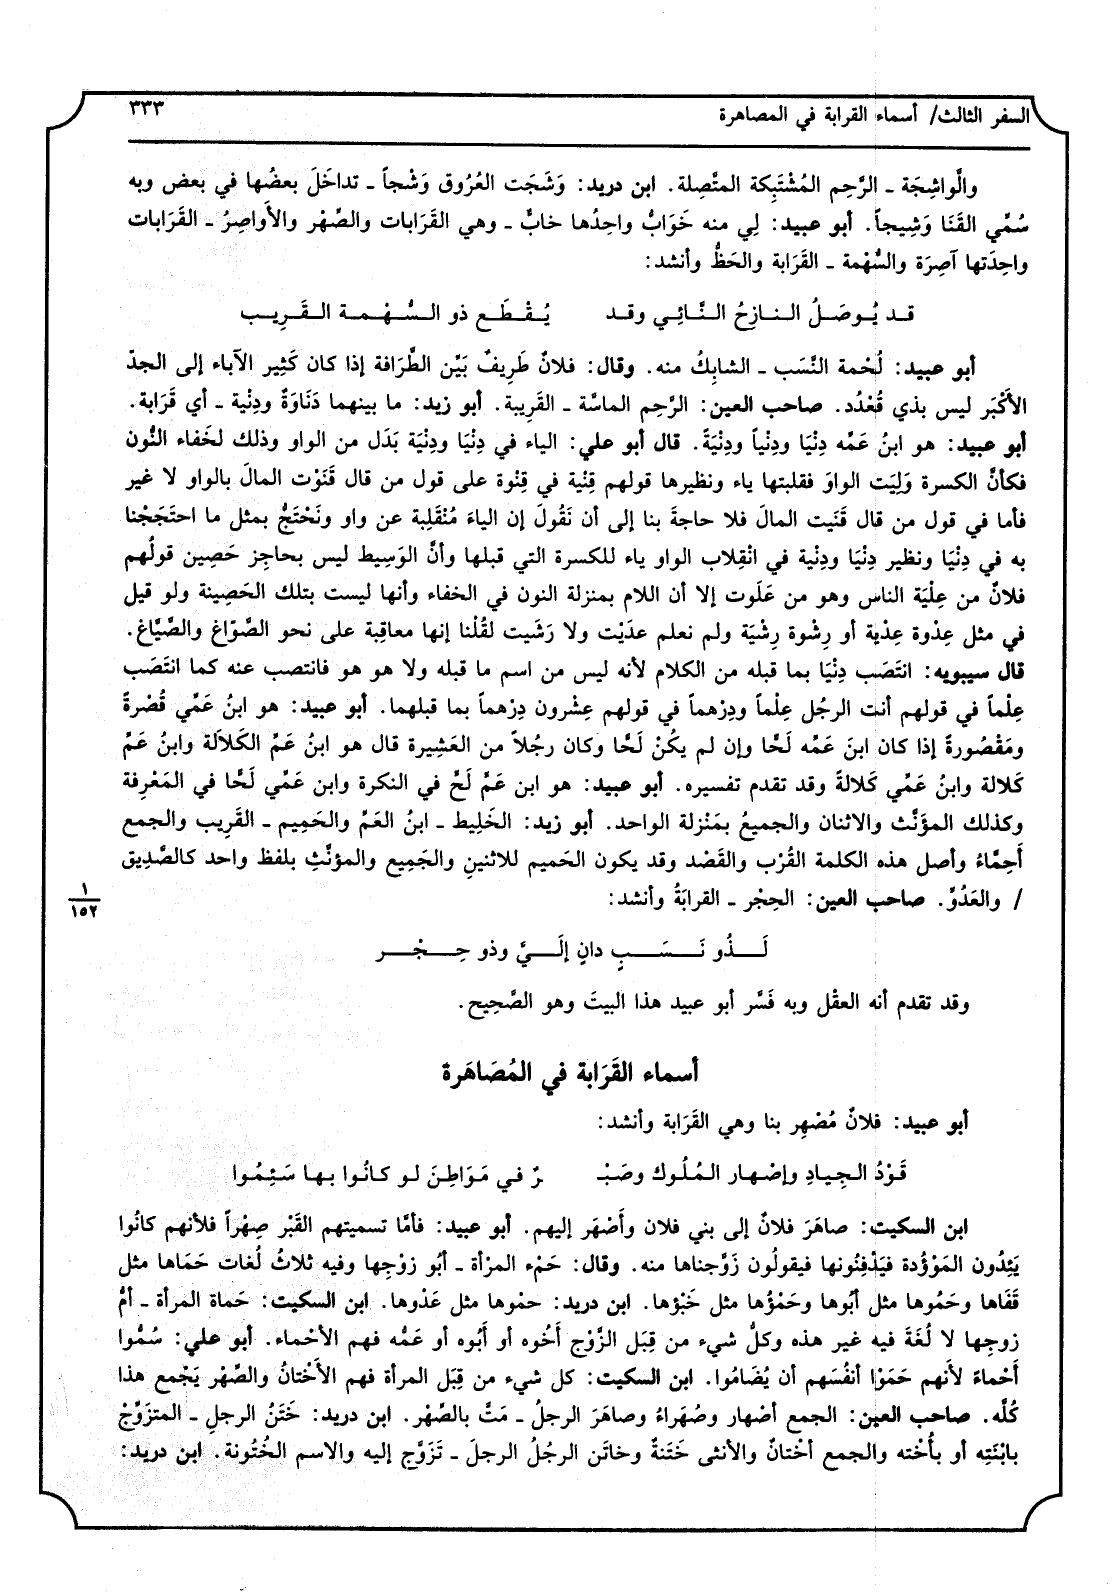 السفر الثالث/ أسماء القرابة في المصاهرة
٣٣٣
والَّواشِجَة ـ الرَّحِم المُشْتَبِكة المتَّصِلة. ابن دريد: وَشَجَت العُرُوق وَشْجاً ـ تداخَلَ بعضُها في بعض وبه
سُمِّي القَنَا وَشِيجاً. أبو عبيد: لِي منه خَوَابُّ واحِدُها خابٌ ـ وهي القَرَابات والصِّهْر والأَواصِرُ ـ القَرَابات
واحِدَتها آصِرَة والسُّهْمة ـ القَرَابة والحَظُّ وأنشد:
قد يُوصَلُ النازِحُ النَّائِي وقد يُقْطَع ذو السُّهْمة القَرِيب
أبو عبيد: لُحْمة النَّسَب ـ الشابِكُ منه. وقال: فلانٌ طَرِيفٌ بَيِّن الطَّرَافة إذا كان كَثِير الآباء إلى الجدّ
الأَكْبَر ليس بذي قُعْدُد. صاحب العين: الرَّحِم الماسَّة ـ القَرِيبة. أبو زيد: ما بينهما دَنَاوَةٌ ودِنْية ـ أي قَرَابة.
أبو عبيد: هو ابنُ عَمِّه دِنْيَا ودِنْياً ودِنْيَةً. قال أبو علي: الياء في دِنْيَا ودِنْيَة بَدَل من الواو وذلك لخَفاء النُّون
فكأنَّ الكسرة وَلِيَت الواوَ فقلبتها ياء ونظيرها قولهم قِنْية في قِنْوة على قول من قال قَنَوْت المالَ بالواو لا غير
فأما في قول من قال قَنَيت المالَ فلا حاجةَ بنا إلى أن نَقُولَ إن الياءَ مُنْقَلِبة عن واو ونَحْتَجُّ بمثل ما احتَجَجْنا
به في دِنْيَا ونظير دِنْيَا ودِنْية في انْقِلاب الواو ياء للكسرة التي قبلها وأنَّ الوَسِيط ليس بحاجِز حَصِين قولُهم
فلانٌ من عِلْيَة الناس وهو من عَلَوت إلا أن اللام بمنزلة النون في الخفاء وأنها ليست بتلك الحَصِينة ولو قيل
في مثل عِدْوة عِدْية أو رِشْوة رِشْيَة ولم نعلم عدَيْت ولا رَشَيت لقُلْنا إنها معاقِبة على نحو الصَّوّاغ والصَّيَّاغ.
قال سيبويه: انتَصَب دِنْيَا بما قبله من الكلام لأنه ليس من اسم ما قبله ولا هو هو فانتصب عنه كما انتَصَب
عِلْماً في قولهم أنت الرجُل عِلْماً ودِرْهماً في قولهم عِشْرون دِرْهماً بما قبلهما. أبو عبيد: هو ابنُ عَمِّي قُصْرةً
ومَقْصُورةً إذا كان ابنَ عَمِّه لَحًّا وإن لم يكُنْ لَحًّا وكان رجُلاً من العَشِيرة قال هو ابنُ عَمِّ الكَلاَلة وابنُ عَمِّ
كَلالة وابنُ عَمِّي كَلالةً وقد تقدم تفسيره. أبو عبيد: هو ابن عَمِّ لَحٍّ في النكرة وابن عَمِّي لَحًّا في المَعْرِفة
وكذلك المؤَنَّث والاثنان والجميعُ بمَنْزلة الواحد. أبو زيد: الخَلِيط ـ ابنُ العَمِّ والحَمِيم ـ القَرِيب والجمع
أَحِمَّاءُ وأصل هذه الكلمة القُرْب والقَصْد وقد يكون الحَميم للاثنينِ والجَمِيع والمؤنَّثِ بلفظ واحد كالصَّدِيق
/ والعَدُوِّ. صاحب العين: الحِجْر ـ القرابَةُ وأنشد:
١
١٥٢
لَذُو نَسَبٍ دانٍ إلَيَّ وذو حِجْر
وقد تقدم أنه العقْل وبه فَسَّر أبو عبيد هذا البيتَ وهو الصَّحِيح.
أسماء القَرَابة في المُصَاهَرة
أبو عبيد: فلانٌ مُصْهِر بنا وهي القَرَابة وأنشد:
قَوْدُ الجِيادِ وإصْهار المُلُوك وصَبْـ ـرٌ في مَوَاطِنَ لو كانُوا بها سَئِمُوا
ابن السكيت: صاهَرَ فلانٌ إلى بني فلان وأَصْهَر إليهم. أبو عبيد: فأمَّا تسميتهم القَبْر صِهْراً فلأنهم كانُوا
يَئِدُون المَوْؤُدة فيَدْفِنُونها فيقولُون زَوَّجناها منه. وقال: حَمْء المرْأة ـ أبُو زوْجِها وفيه ثلاثُ لُغات حَمَاها مثل
قَفَاها وحَمُوها مثل أبُوها وحَمْؤُها مثل خَبْؤها. ابن دريد: حمْوها مثل عَدْوها. ابن السكيت: حَماة المرأة ـ أمُّ
زوجِها لا لُغَةَ فيه غير هذه وكلُّ شيء من قِبَل الزَّوْج أَخُوه أو أَبُوه أو عَمُّه فهم الأحْماء. أبو علي: سُمُّوا
أَحْماءً لأنهم حَمَوْا أنفُسَهم أن يُضَامُوا. ابن السكيت: كل شيء من قِبَل المرأة فهم الأَخْتانُ والصِّهْر يَجْمع هذا
كُلَّه. صاحب العين: الجمع أصْهار وصُهَراءُ وصاهَرَ الرجلُ ـ مَتَّ بالصِّهْر. ابن دريد: خَتَنُ الرجلِ ـ المتزوِّجُ
بابْنَتِه أو بأُخْته والجمع أخْتانٌ والأنثى خَتَنةٌ وخاتَن الرجُلُ الرجلَ ـ تَزَوَّج إليه والاسم الخُتُونة. ابن دريد: